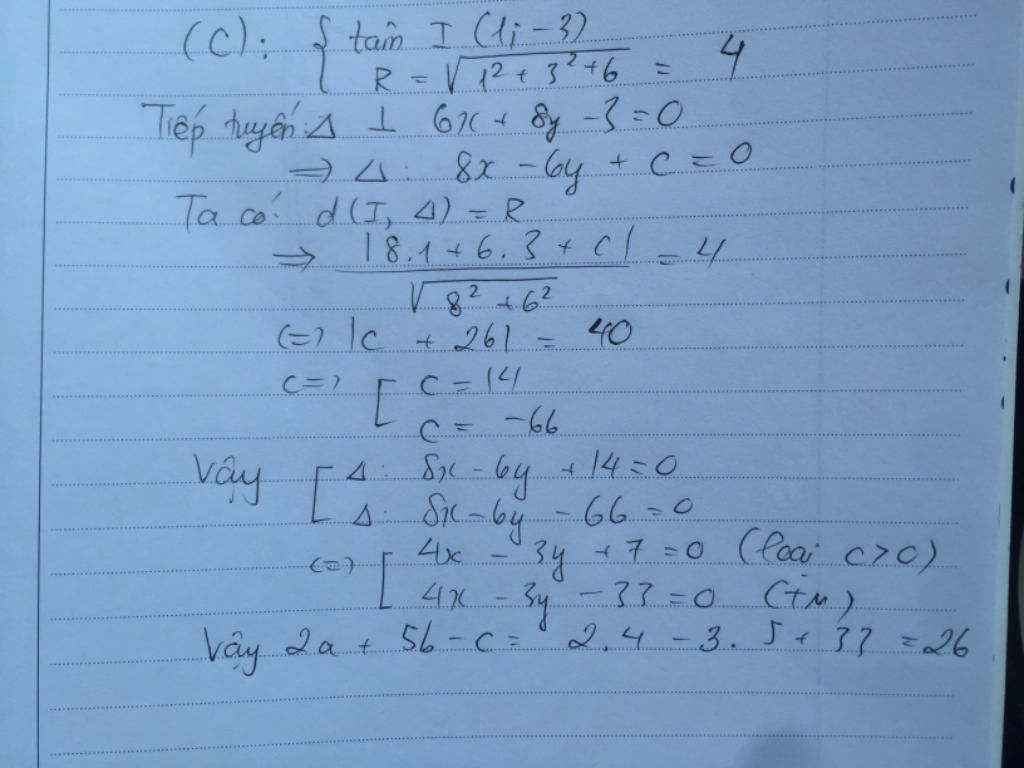 (C): { tâm I (1; -3)
R = √(1² + 3² + 6) = 4
Tiếp tuyến: Δ ⊥ 6x + 8y - 3 = 0
=> Δ: 8x - 6y + c = 0
Ta có: d(I, Δ) = R
=> |8.1 + 6.3 + c| / √(8² + 6²) = 4
(=) |c + 26| = 40
(=) [ c = 14
c = -66
Vậy [ Δ: 8x - 6y + 14 = 0
Δ: 8x - 6y - 66 = 0
(=) [ 4x - 3y + 7 = 0 (loại c > 0)
4x - 3y - 33 = 0 (TM)
Vậy 2a + 5b - c = 2.4 - 3.5 + 33 = 26